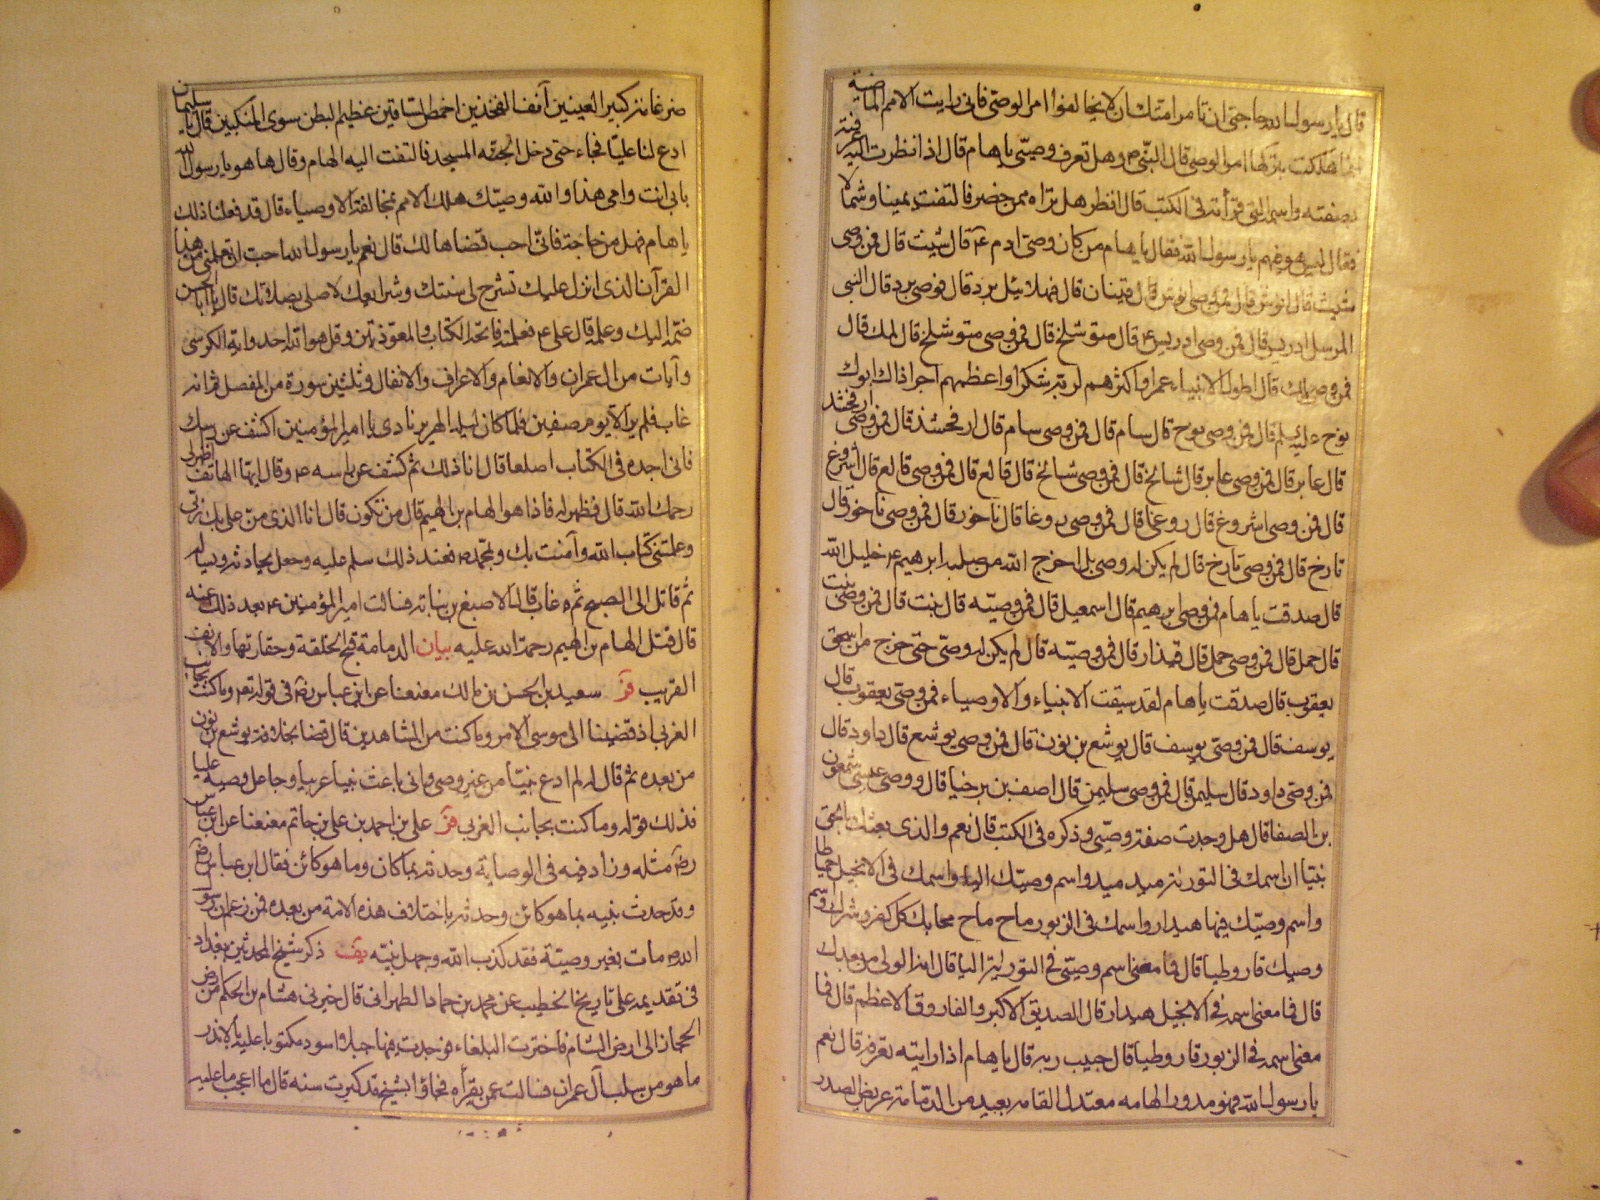 قال يا رسول الله حاجتى ان تامر امتك ان لا يخالفوا امر الوصى فانى رايت الامم الماضية
انما هلكت بتركها امر الوصى قال النبى ص وهل تعرف وصيى يا هام قال اذا نظرت اليه عرفته
بصفته واسمه الذى قرأته فى الكتب قال انظر هل تراه ممن حضر فالتفت يمينا وشمالا
فقال ليس هو فيهم يا رسول الله فقال يا هام من كان وصى ادم ع قال شيث قال فمن وصى
شيث قال انوش قال فمن وصى انوش قال قينان قال مهلائيل برد قال فوصى برد قال النبى
المرسل ادريس قال فمن وصى ادريس ع قال متوشلخ قال فمن وصى متوشلخ قال لمك قال
فمن وصى لمك قال اطول الانبياء عمرا واكثرهم لربه شكرا واعظمهم اجرا ذاك ابوك
نوح عليه السلم قال فمن وصى نوح قال سام قال فمن وصى سام قال ارفخشد قال فمن وصى ارفخشد
قال عابر قال فمن وصى عابر قال شالخ قال فمن وصى شالخ قال قالع قال فمن وصى قالع قال اشروغ
قال فمن وصى اشروغ قال روغا قال فمن وصى روغا قال ناخور قال فمن وصى ناخور قال
تارخ قال فمن وصى تارخ قال لم يكن له وصى بل اخرج الله من صلبه ابرهيم ع خليل الله
قال صدقت يا هام فمن وصى ابرهيم قال اسمعيل قال فمن وصيه قال نبت قال فمن وصى نبت
قال حمل قال فمن وصى حمل قال قيذار قال فمن وصيه قال لم يكن له وصى حتى خرج من اسحق
يعقوب قال صدقت يا هام لقد سبقت الانبياء والاوصياء فمن وصى يعقوب قال
يوسف قال فمن وصى يوسف قال يوشع بن نون قال فمن وصى يوشع قال داود قال
فمن وصى داود قال سليمن قال فمن وصى سليمن قال اصف بن برخيا قال ووصى عيسى شمعون
بن الصفا قال هل وجدت صفة وصيى وذكره فى الكتب قال نعم والذى بعثك بالحق
نبيا ان اسمك فى التورية ميد ميد واسم وصيك اليا واسمك فى الانجيل حمياطا
واسم وصيك فيها هيدار واسمك فى الزبور ماح ماح محا بك كل كفر وشرك واسم
وصيك قاروطيا قال فما معنى اسم وصيى فى التورية اليا قال انه الولى من بعدك
قال فما معنى اسمه فى الانجيل هيدار قال الصديق الاكبر والفاروق الاعظم قال فما
معنى اسمه فى الزبور قاروطيا قال حبيب ربه قال يا هام اذا رايته تعرفه قال نعم
يا رسول الله فهو مدور الهامه معتدل القامه بعيد من الدمامة عريض الصدر
ضرغامة كبير العينين آنف الفخذين اخمص الساقين عظيم البطن سوى المنكبين قال يا سلمان
ادع لنا عليا فجاء حتى دخل المسجد فالتفت اليه الهام وقال ها هو يا رسول الله
بابى انت وامى هذا والله وصيك هلك الامم بمخالفة الاوصياء قال قد فعلنا ذلك
يا هام فهل من حاجة فانى احب قضاها لك قال نعم يا رسول الله احب ان تعلمنى من هذا
القرآن الذى انزل عليك تشرح لى سنتك وشرايعك لاصلى بصلاتك قال يا ابا الحسن
ضمه اليك وعلمه قال على ع فعلمته فاتحة الكتاب والمعوذتين وقل هو الله احد واية الكرسى
وآيات من ال عمران والانعام والاعراف والانفال وثلثين سورة من المفصل ثم انه
غاب فلم ير الا يوم صفين فلما كان ليلة الهرير نادى يا امير المؤمنين اكشف عن راسك
فانى اجده فى الكتاب اصلعا قال انا ذلك ثم كشف عن راسه ص وقال ايها الهاتف اظهر لى
رحمك الله قال فظهر له فاذا هو الهام بن الهيم قال من تكون قال انا الذى من على بك ربى
وعلمتنى كتاب الله وآمنت بك وبمحمد ص فعند ذلك سلم عليه وجعل يحادثه ويساله
ثم قاتل الى الصبح ثم غاب قال الاصبغ بن نباته فسالت امير المؤمنين ع بعد ذلك عنه
قال قتل الهام بن الهيم رحمة الله عليه بيان الدمامة قبح الخلقة وحقارتها والانف
القريب فر سعيد بن الحسن بن مالك معنعنا عن ابن عباس رض فى قوله تع وما كنت بجانب
الغربى اذ قضينا الى موسى الامر وما كنت من الشاهدين قال قضا بخلافة يوشع بن نون
من بعده ثم قال له لم ادع نبيا من غير وصى وانى باعث نبيا عربيا وجاعل وصيه عليا
فذلك قوله وما كنت بجانب الغربى فر على بن احمد بن على بن حاتم معنعنا عن ابن عباس
رض مثله وزاد فيه فى الوصاية وحدثه بما كان وما هو كائن فقال ابن عباس رض
وقد حدث نبيه بما هو كائن وحدثه باختلاف هذه الامة من بعده فمن زعم ان رسول
الله مات بغير وصية فقد كذب الله وجهل نبيه يف ذكر شيخ المحدثين ببغداد
فى تقديمه على تاريخ الخطيب عن محمد بن حماد الطهرانى قال خبرنى هشام بن الحكم من ارض
الحجاز الى ارض الشام فاخترت البلغاء فوجدت فيها جبلا اسود مكتوبا عليه بالاندر
ما هو من سلب آل عمران فسالت عمن يقرأه فجاؤا بشيخ قد كبرت سنه قال ما اعجب ما عليه